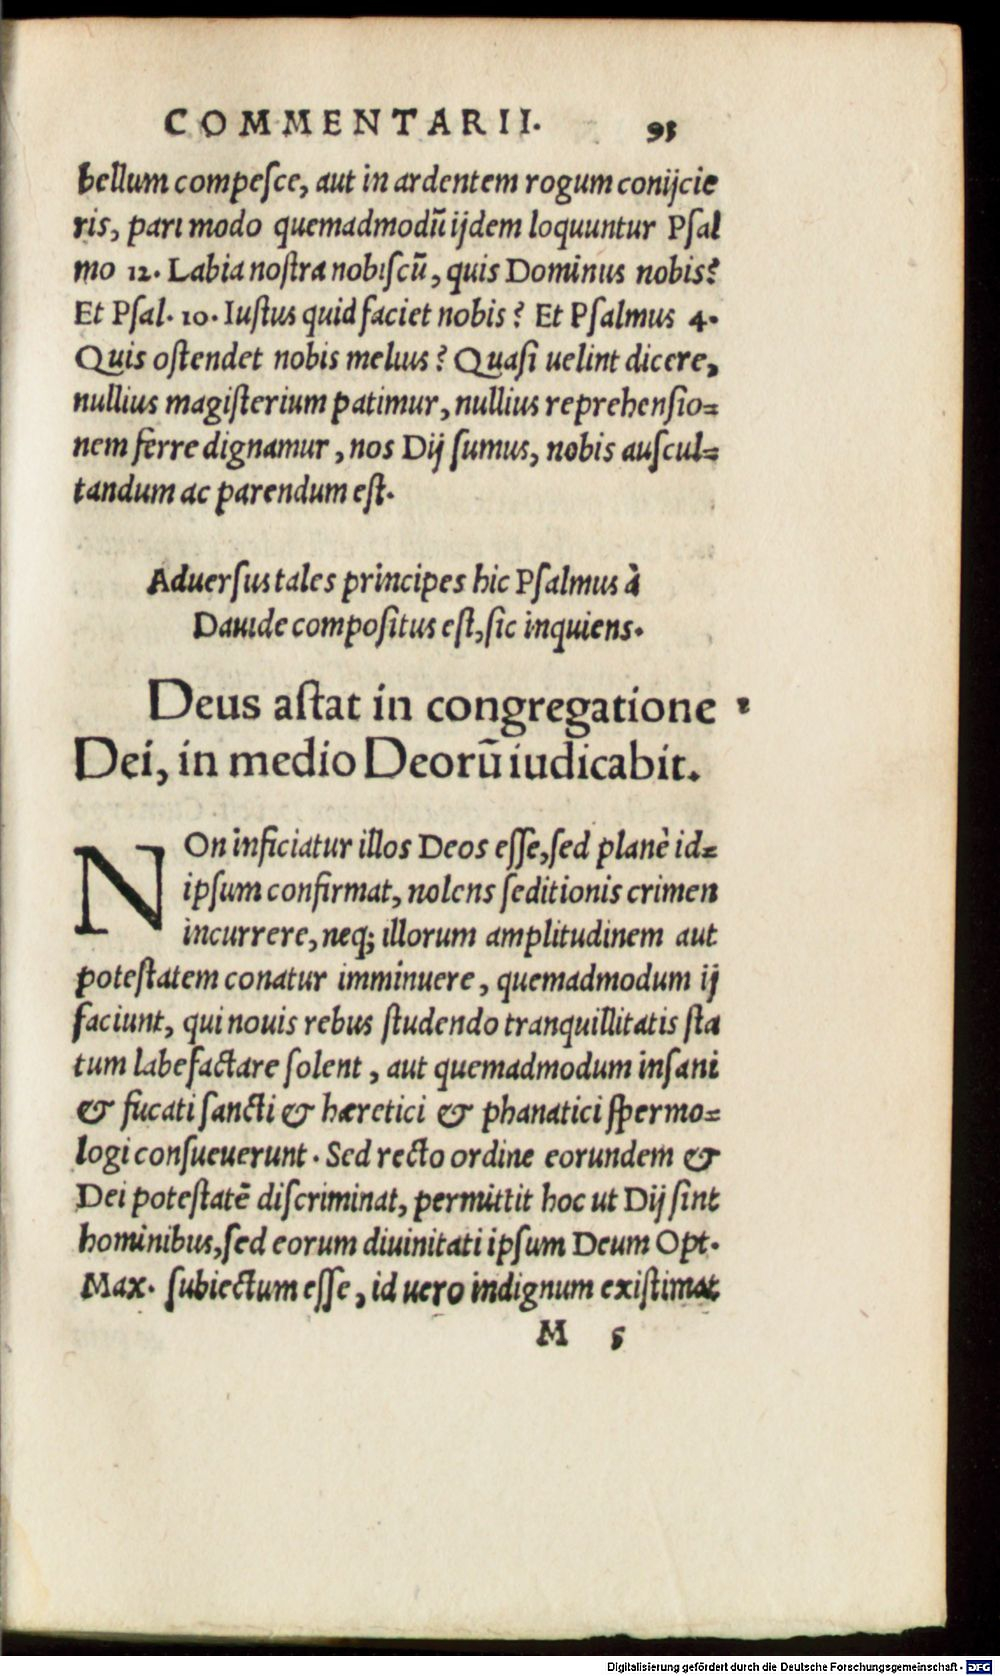 COMMENTARII. 93
bellum compeſce, aut in ardentem rogum conijcie
ris, pari modo quemadmodū ijdem loquuntur Pſal
mo 12. Labia noſtra nobiſcū, quis Dominus nobis?
Et Pſal. 10. Iuſtus quid faciet nobis? Et Pſalmus 4.
Quis oſtendet nobis melius? Quaſi uelint dicere,
nullius magiſterium patimur, nullius reprehenſio=
nem ferre dignamur, nos Dij ſumus, nobis auſcul=
tandum ac parendum eſt.
Aduerſus tales principes hic Pſalmus à
Dauide compoſitus eſt, ſic inquiens.
Deus aſtat in congregatione
Dei, in medio Deorū iudicabit.
NOn inficiatur illos Deos eſſe, ſed planè id=
ipſum confirmat, nolens ſeditionis crimen
incurrere, neq; illorum amplitudinem aut
poteſtatem conatur imminuere, quemadmodum ij
faciunt, qui nouis rebus ſtudendo tranquillitatis ſta
tum labefactare ſolent, aut quemadmodum inſani
& fucati ſancti & hæretici & phanatici ſpermo=
logi conſueuerunt. Sed recto ordine eorundem &
Dei poteſtatē diſcriminat, permittit hoc ut Dij ſint
hominibus, ſed eorum diuinitati ipſum Deum Opt.
Max. ſubiectum eſſe, id uero indignum exiſtimat
M 5
Digitalisierung gefördert durch die Deutsche Forschungsgemeinschaft - DFG